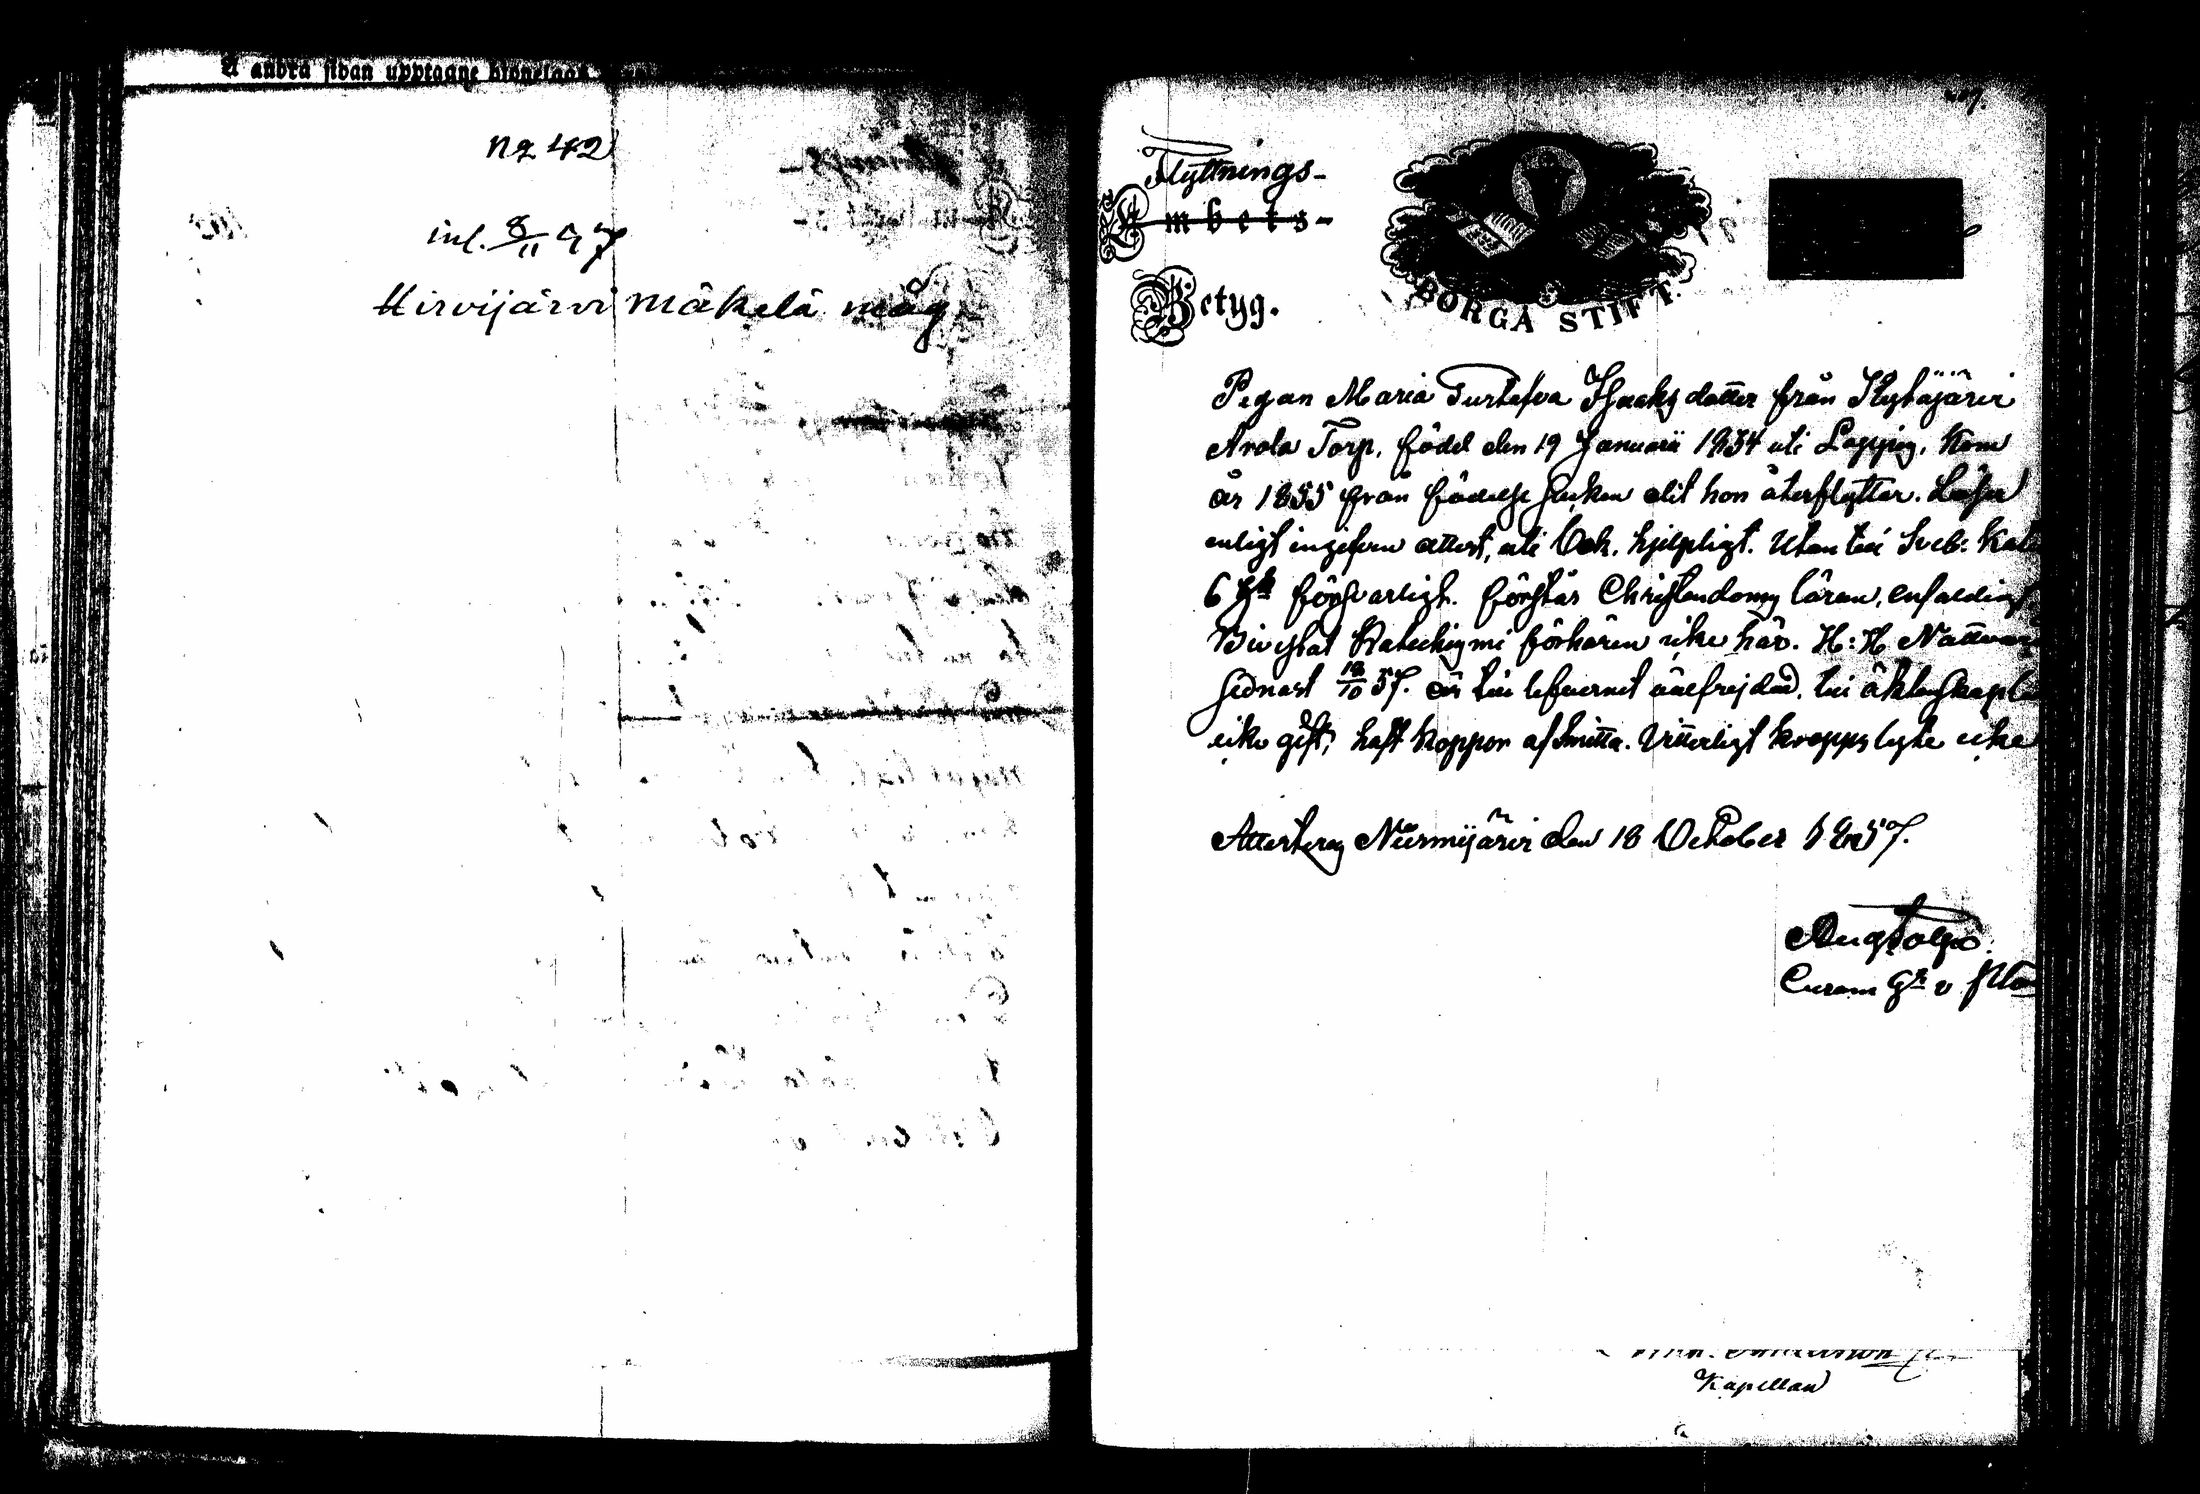 Å andra sidan upptagne
No 42
inl. 8/11 57
Hirvijärvi Mäkelä måg
Flyttnings-
Embets-
BORGÅ STIFT.
Betyg.
Pigan Maria Gustafva Isaaks dotter från Kytäjärvi
Arola Torp, född den 19 Januarii 1834 uti Loppis, Kom
år 1855 från födelse socken dit hon återflyttar. Läser
enligt ingifven attest, uti Bok, hjelpligt. Utan till Sveb: Kat
försvarligt. förstår Christendoms läran, enfaldigt
Bivistat Katechismi förhören icke här. H: H Nattvard
sednast 18/10 57. är till lefvernet välfrejdad, till äktenskap
icke gift, haft koppor af smitta. Vitterligt kropps lyte icke
Attesteras Nurmijärvi den 18 October 1857.
Kapellan